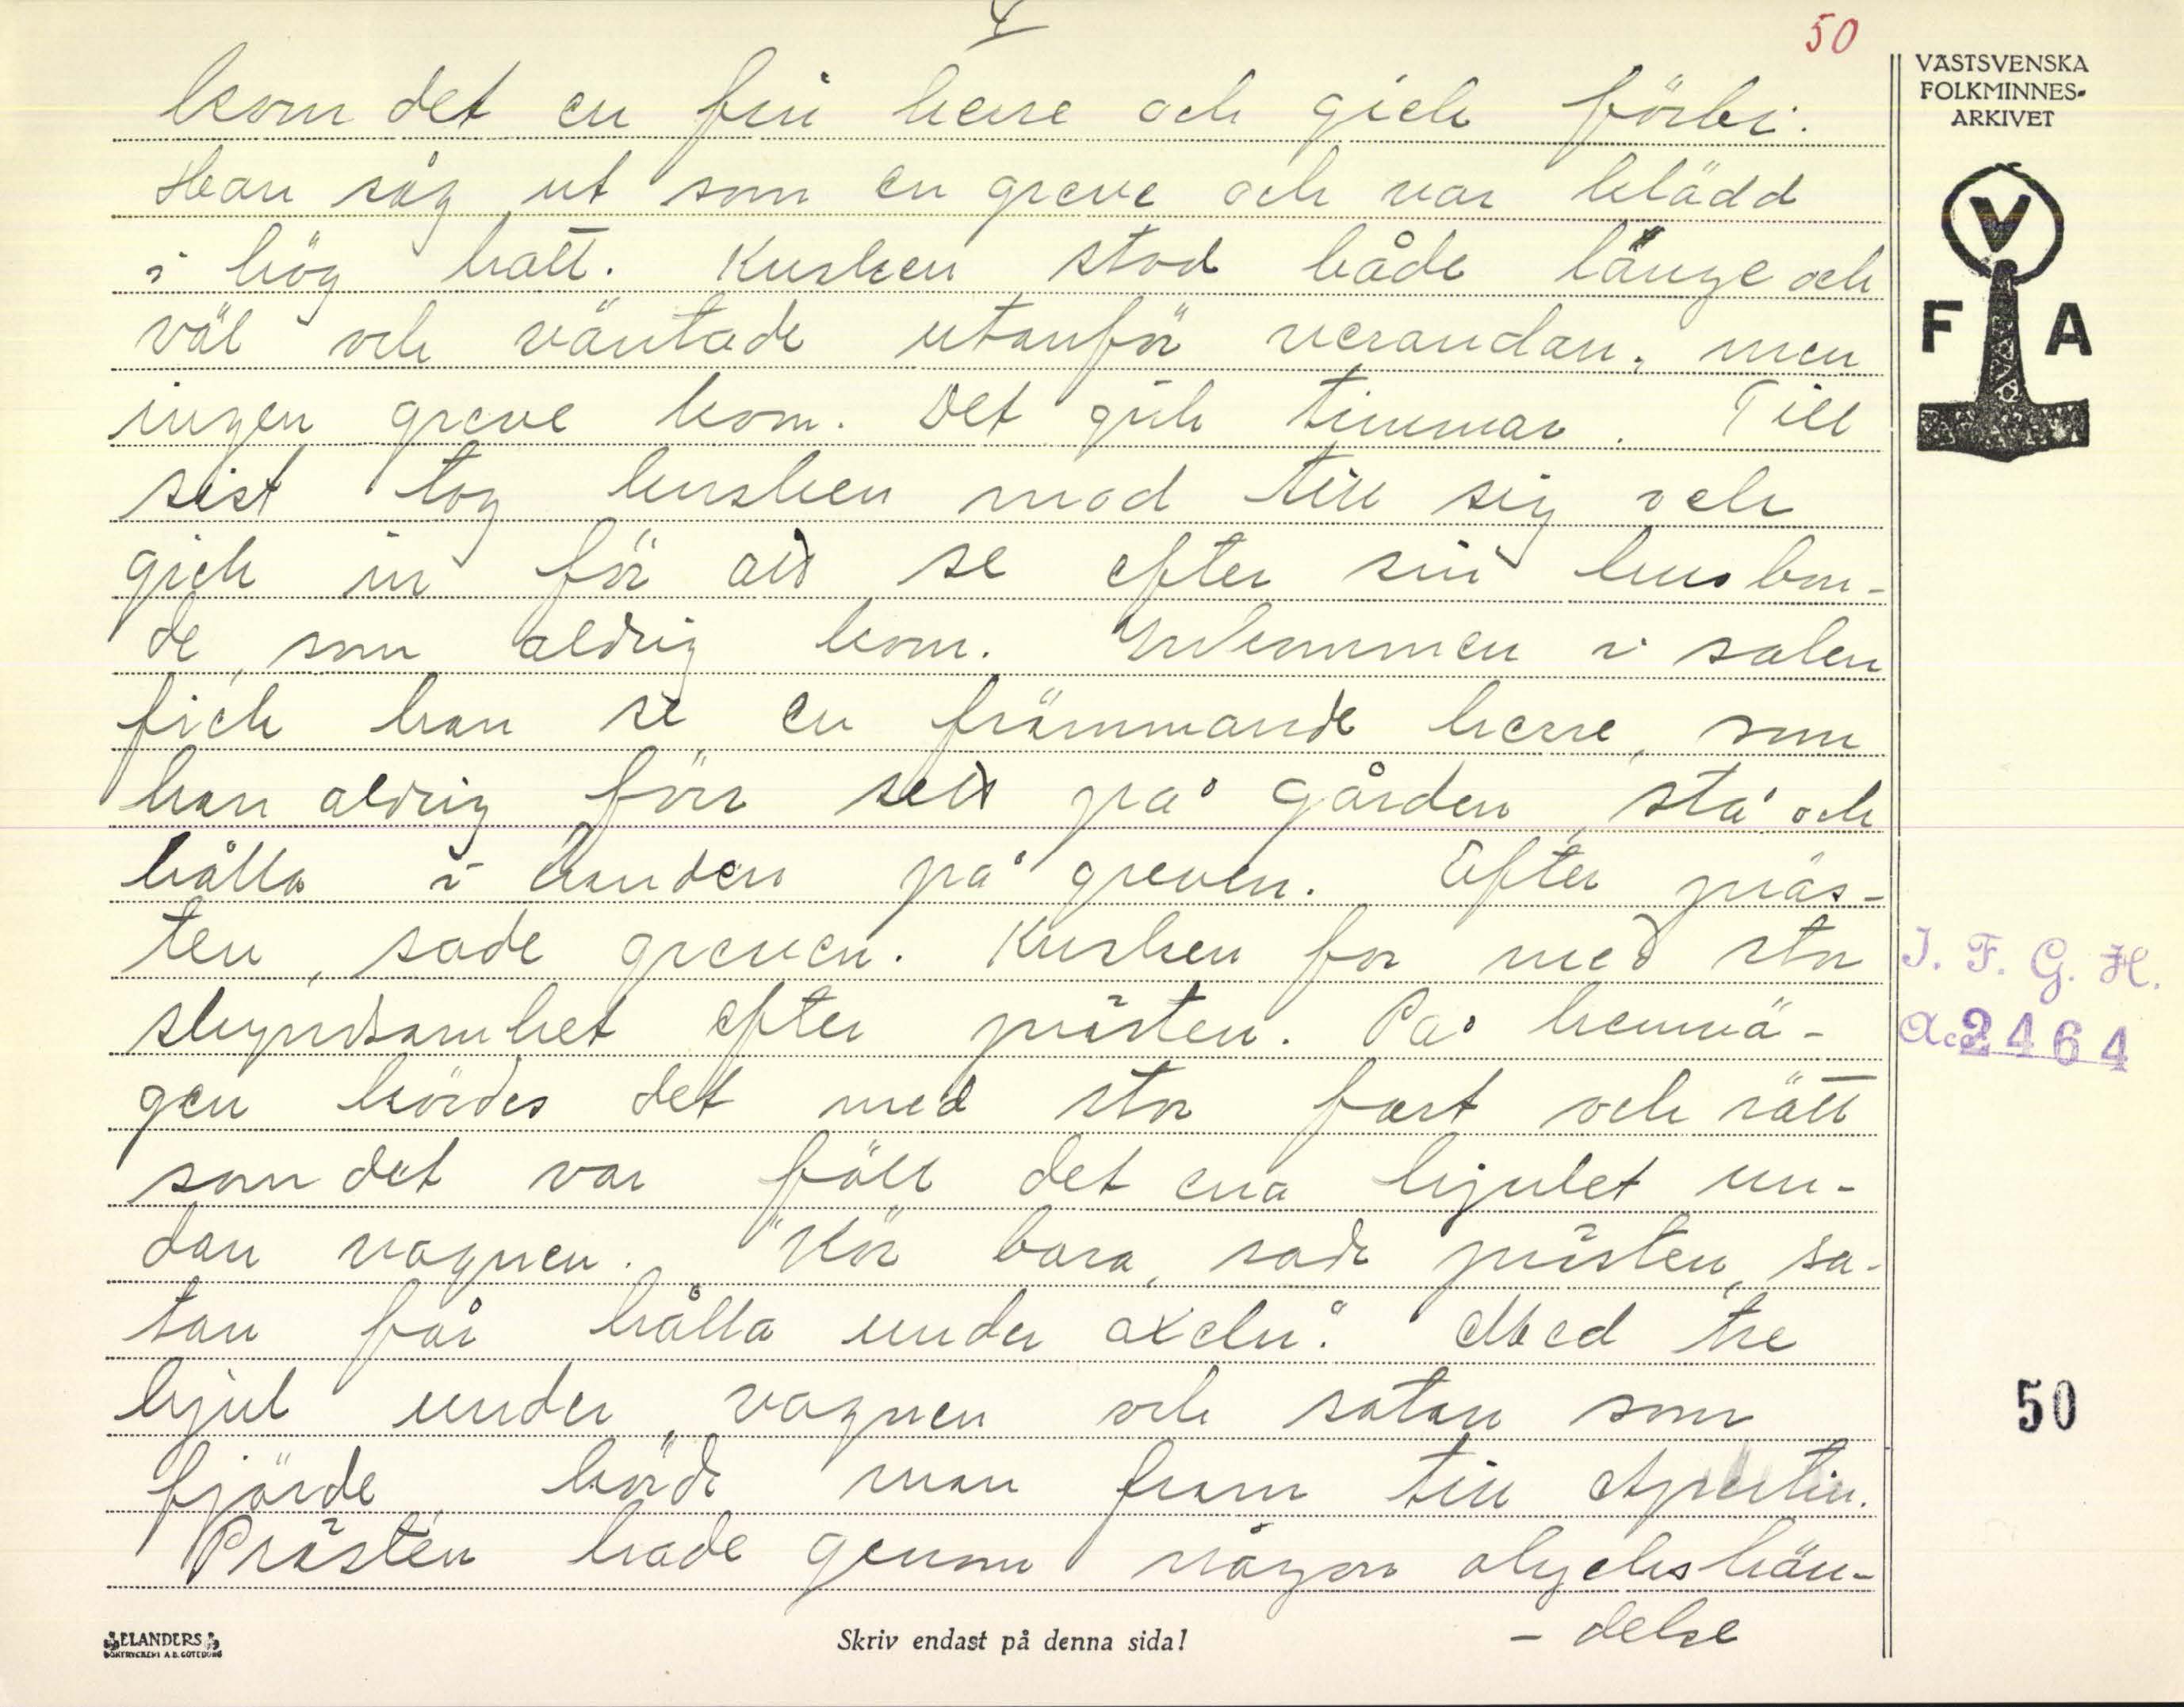 50
kom det en fin herre och gick förbi.
Han såg ut som en greve och var klädd
i hög hatt. Kusken stod både länge och
väl och väntade utanför verandan, men
ingen greve kom. Det gick timmar. Till
sist tog kusken mod till sig och
gick in för att se efter sin husbon-
de, som aldrig kom. Inkommen i salen
fick han se en främmande herre, som
han aldrig förr sett på gården, stå och
hålla i handen på greven. Efter präs-
ten, sade greven. Kusken for med stor
skyndsamhet efter prästen. På hemvä-
gen kördes det med stor fart och rätt
som det var föll det ena hjulet un-
dan vagnen. "Kör bara, sade prästen, sa-
tan får hålla under axeln." Med tre
hjul under vagnen och satan som
fjärde, körde man fram till Apertin.
Prästen hade genom någon olyckshän-
- delse
VÄSTSVENSKA
FOLKMINNES-
ARKIVET
V
F A
I. F. G. H.
Acc 2464
50
ELANDERS
BOKTRYCKERI A.B. GÖTEBORG
Skriv endast på denna sida!